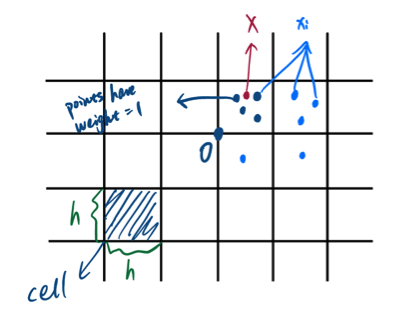 X
xi
points have
weight = 1
0
h
h
cell